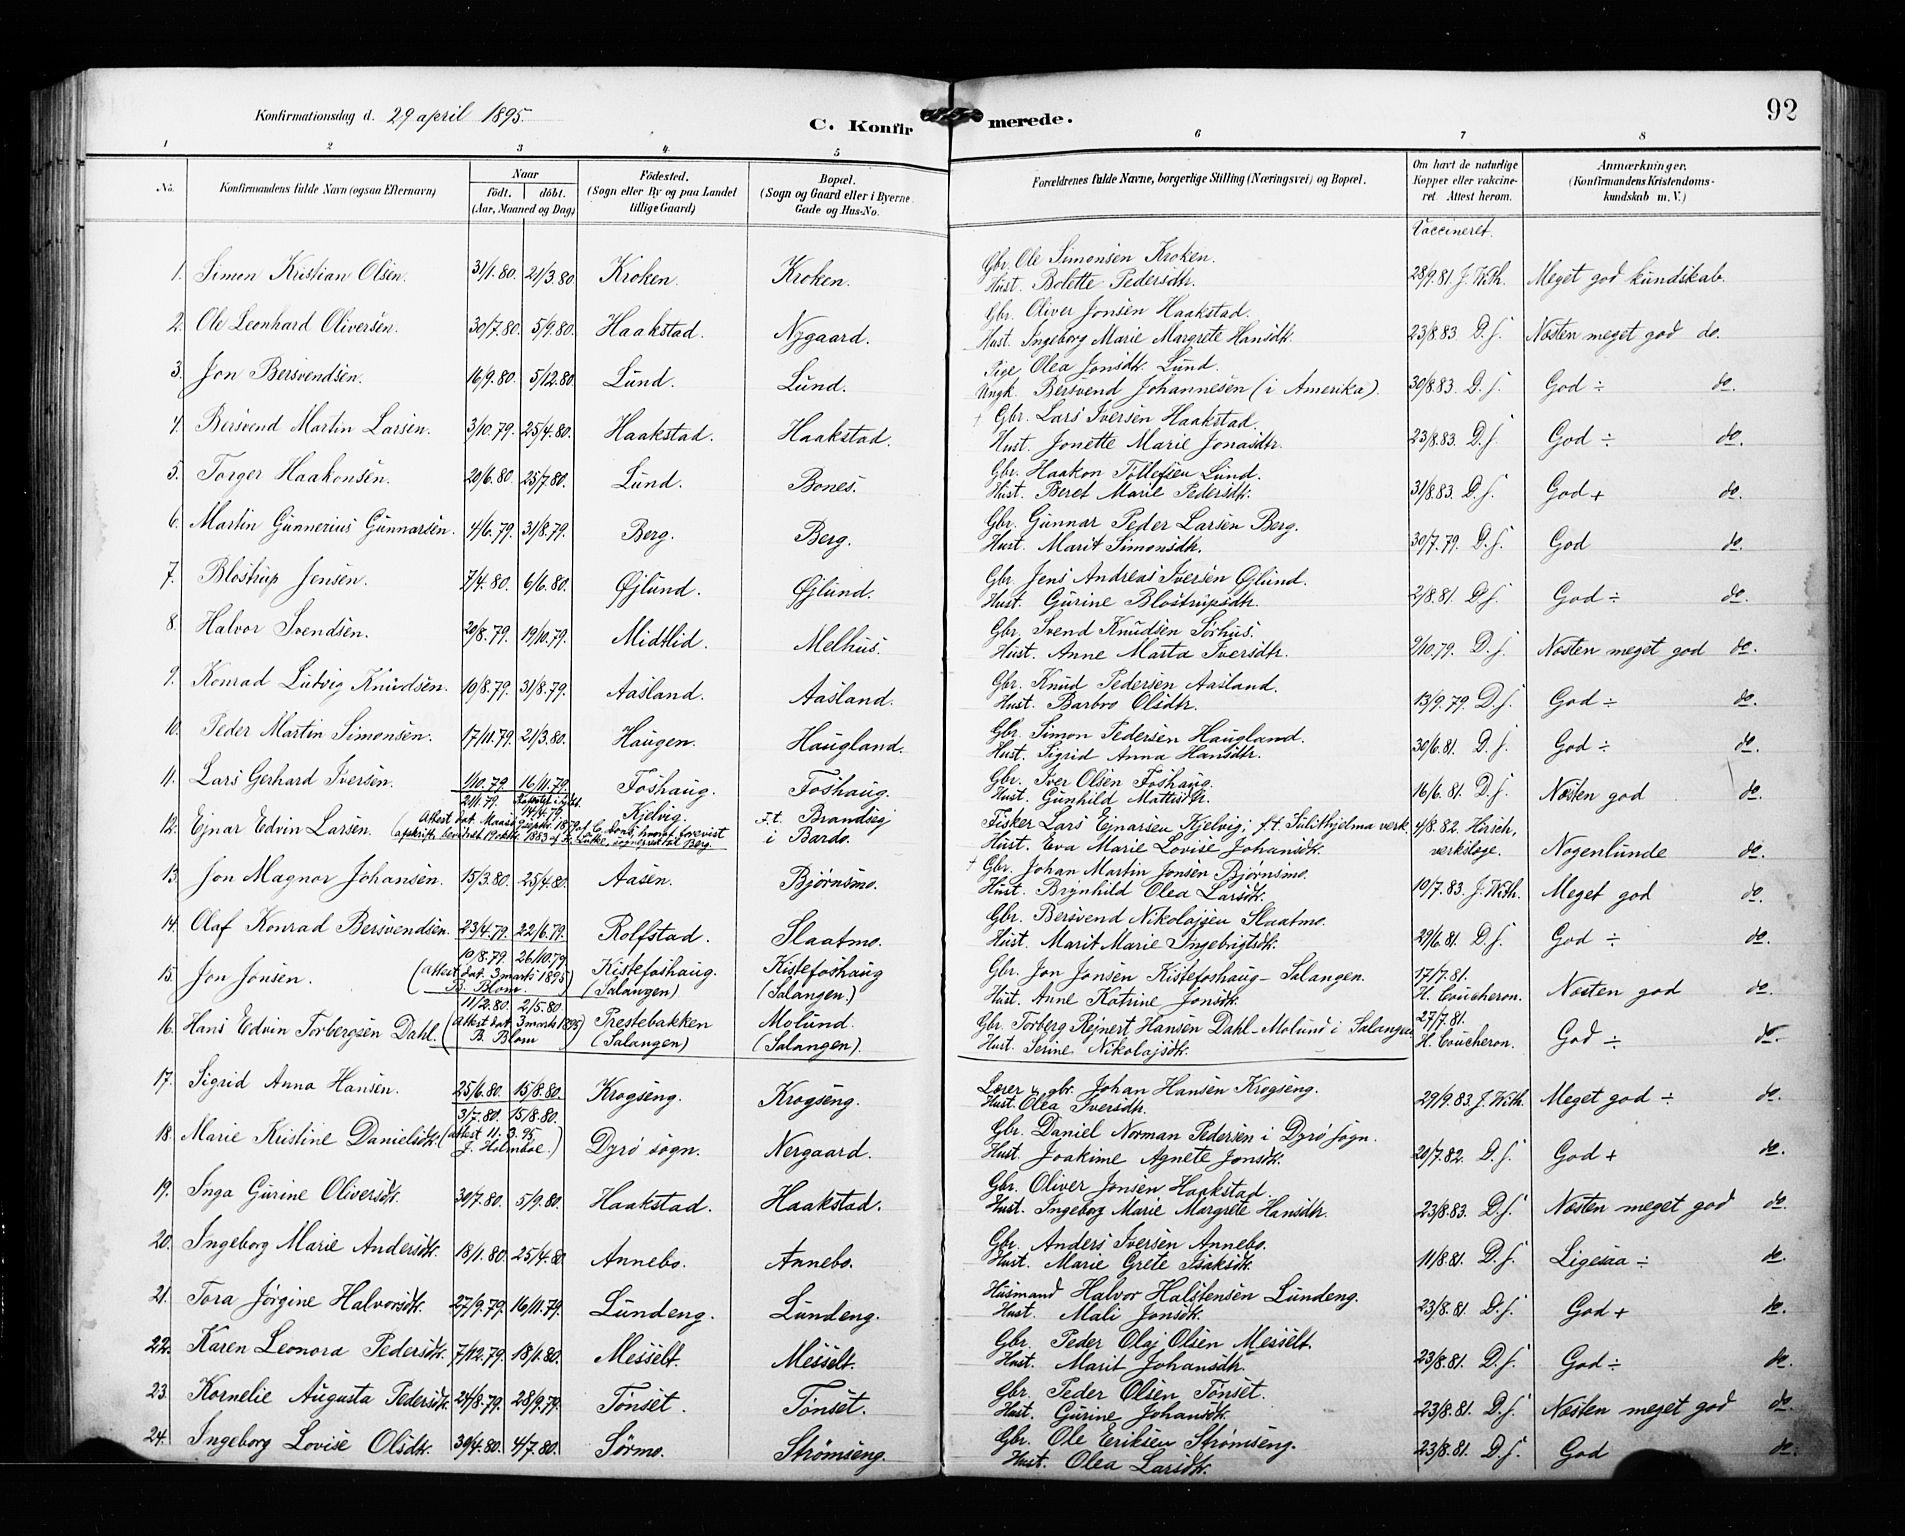 92
Konfirmationsdag d. 29 april 1895.
C. Konfirmerede.
1 2 3 4 5 6 7 8
No. Konfirmandens fulde Navn (ogsaa Efternavn) Naar födt. döbt. (Aar, Maaned og Dag) Födested. (Sogn eller By og paa Landet tillige Gaard) Bopæl. (Sogn og Gaard eller i Byerne Gade og Hus-No. Forældrenes fulde Navne, borgerlige Stilling (Næringsvei) og Bopæl. Om havt de naturlige Kopper eller vakcineret. Attest herom. Anmærkninger. (Konfirmandens Kristendomskundskab m. V.)
Vaccineret.
1. Simon Kristian Olsen. 31/1.80. 21/3.80. Kroken. Kroken. Gbr. Ole Simonsen Kroken. 28/9.81. J. With. Meget god kundskab.
Hust. Bolette Pedersdtr.
2. Ole Leonhard Oliversen. 30/7.80. 5/9.80. Haakstad. Nygaard. Gbr. Oliver Jonsen Haakstad. 23/8.83. D. s. Næsten meget god do.
Hust. Ingeborg Marie Margrete Hansdtr.
3. Jon Bersvendsen. 16/9.80. 5/12.80. Lund. Lund. Pige Olea Jonsdtr. Lund. 30/8.83. D. s. God ÷ do.
Ungk. Bersvend Johannesen (i Amerika).
4. Bersvend Martin Larsen. 3/10.79. 25/4.80. Haakstad. Haakstad. + Gbr. Lars Iversen Haakstad. 23/8.83. D. s. God ÷ do.
Hust. Jonette Marie Jonasdtr.
5. Torger Haakonsen. 20/6.80. 25/7.80. Lund. Bones. Gbr. Haakon Tollefsen Lund. 31/8.83. D. s. God + do.
Hust. Beret Marie Pedersdtr.
6. Martin Gunnerius Gunnarsen. 4/6.79. 31/8.79. Berg. Berg. Gbr. Gunnar Peder Larsen Berg. 30/7.79. D. s. God do.
Hust. Marit Simonsdtr.
7. Blostrup Jensen. 7/4.80. 6/6.80. Øjlund. Øjlund. Gbr. Jens Andreas Iversen Øjlund. 2/8.81. D. s. God ÷ do.
Hust. Gurine Blostrupsdtr.
8. Halvor Svendsen. 20/8.79. 19/10.79. Midtlid. Melhus. Gbr. Svend Knudsen Sørhus. 2/10.79. D. s. Næsten meget god do.
Hust. Anne Marta Iversdtr.
9. Konrad Ludvig Knudsen. 10/8.79. 31/8.79. Aasland. Aasland. Gbr. Knud Pedersen Aasland. 13/9.79. D. s. God ÷ do.
Hust. Barbro Olsdtr.
10. Peder Martin Simonsen. 17/11.79. 21/3.80. Haugen. Haugland. Gbr. Simon Pedersen Haugland. 30/6.81. D. s. God ÷ do.
Hust. Sigrid Anna Hansdtr.
11. Lars Gerhard Iversen. 1/10.79. 16/11.79. Foshaug. Foshaug. Gbr. Iver Olsen Foshaug. 16/6.81. D. s. Næsten god do.
Hust. Gunhild Mattisdtr.
12. Ejnar Edvin Larsen. 2/11.79. Kjelvig. F.t. Brandseg i Bardo. Fisker Lars Ejnarsen Kjelvig; f.t. Sulithjelma verk. 4/8.82. Hirsch, værkslæge. Nogenlunde do.
Hust. Eva Marie Lovise Johansdtr.
13. Jon Magnor Johansen. 15/3.80. 25/4.80. Aasen. Bjørnsmo. + Gbr. Johan Martin Jonsen Bjørnsmo. 10/7.83. J. With. Meget god do.
Hust. Brynhild Olea Larsdtr.
14. Olaf Konrad Bersvendsen. 23/4.79. 22/6.79. Rolfstad. Slaatmo. Gbr. Bersvend Nikolajsen Slaatmo. 29/6.81. D. s. God ÷ do.
Hust. Marit Marie Ingebrigtsdtr.
15. Jon Jonsen. 10/8.79. 26/10.79. (Attest dat. 3 marts 1895 B. Blom.) Kistefoshaug. (Salangen) Kistefoshaug (Salangen.) Gbr. Jon Jonsen Kistefoshaug - Salangen. 17/7.81. H. Coucheron. Næsten god do.
Hust. Anne Katrine Jonsdtr.
16. Hans Edvin Torbergsen Dahl. 11/2.80. 2/5.80. (Attest dat. 3 marts 1895 B. Blom) Prestebakken (Salangen) Molund. (Salangen). Gbr. Torberg Rejnert Hansen Dahl - Molund i Salangen. 27/7.81. H. Coucheron. God ÷ do.
Hust. Serine Nikolajsdtr.
17. Sigrid Anna Hansen. 25/6.80. 15/8.80. Krogseng. Krogseng. Lærer & gbr. Johan Hansen Krogseng. 29/9.83. J. With. Meget god ÷ do.
Hust. Olea Iversdtr.
18. Marie Kristine Danielsdtr. 3/7.80. 15/8.80. (Attest 11.3.95. J. Holmboe.) Dyrø sogn. Nergaard. Gbr. Daniel Norman Pedersen i Dyrø sogn. 20/7.82. D. s. God + do.
Hust. Joakime Agnete Jonsdtr.
19. Inga Gurine Oliversdtr. 30/7.80. 5/9.80. Haakstad. Haakstad. Gbr. Oliver Jonsen Haakstad. 23/8.83. D. s. Næsten meget god do.
Hust. Ingeborg Marie Margrete Hansdtr.
20. Ingeborg Marie Andersdtr. 18/1.80. 25/4.80. Annebo. Annebo. Gbr. Anders Iversen Annebo. 11/8.81. D. s. Ligesaa ÷ do.
Hust. Marie Grete Isaksdtr.
21. Tora Jørgine Halvorsdtr. 27/9.79. 16/11.79. Lundeng. Lundeng. Husmand Halvor Halstensen Lundeng. 23/8.81. D. s. God + do.
Hust. Mali Jonsdtr.
22. Karen Leonora Pedersdtr. 7/12.79. 18/1.80. Messelt. Messelt. Gbr. Peder Olaj Olsen Messelt. 23/8.81. D. s. God ÷ do.
Hust. Marit Johansdtr.
23. Kornelie Augusta Pedersdtr. 24/8.79. 28/9.79. Tønset. Tønset. Gbr. Peder Olsen Tønset. 23/8.81. D. s. Næsten meget god do.
Hust. Gurine Johansdtr.
24. Ingeborg Lovise Olsdtr. 30/4.80. 4/7.80. Sørmo. Strømseng. Gbr. Ole Eriksen Strømseng. 23/8.81. D. s. God do.
Hust. Olea Larsdtr.